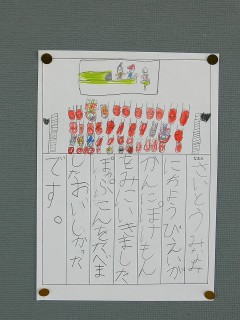 さいとうみゆ
にちようびえいが
かんにぽけもん
をみにいきました
ぽっぷこんをたべま
したおいしかった
です。